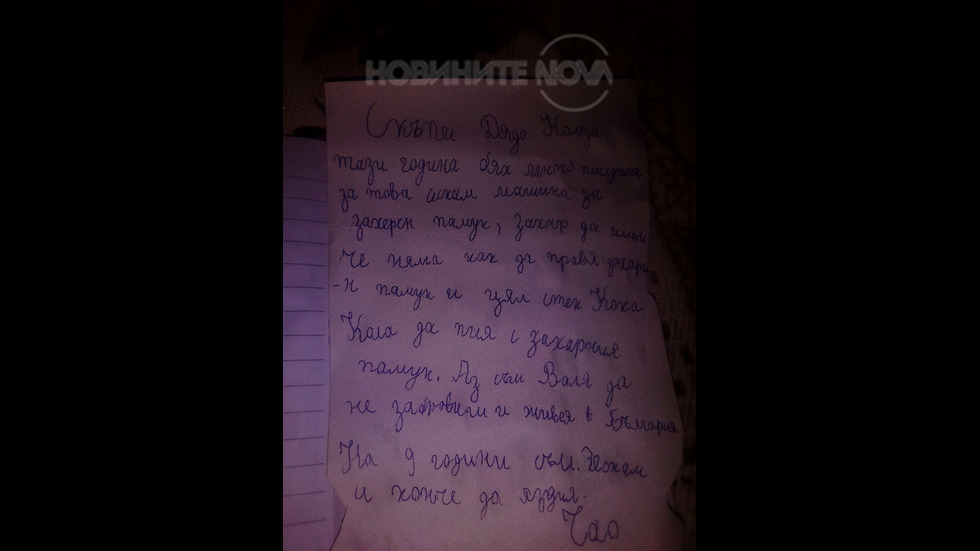 НОВИНИТЕ NOVA
Скъпи Дядо Коледа
тази година бях много послушна
за това искам машина за
захерен памук, захар да имам
че няма как да правя захарни
-н памук и цял стек Кока
Кола да пия с захарния
памук. Аз съм Валя да
не забравиш и живея в България
На 9 години съм. Искам
и конче да яздия.
Чао